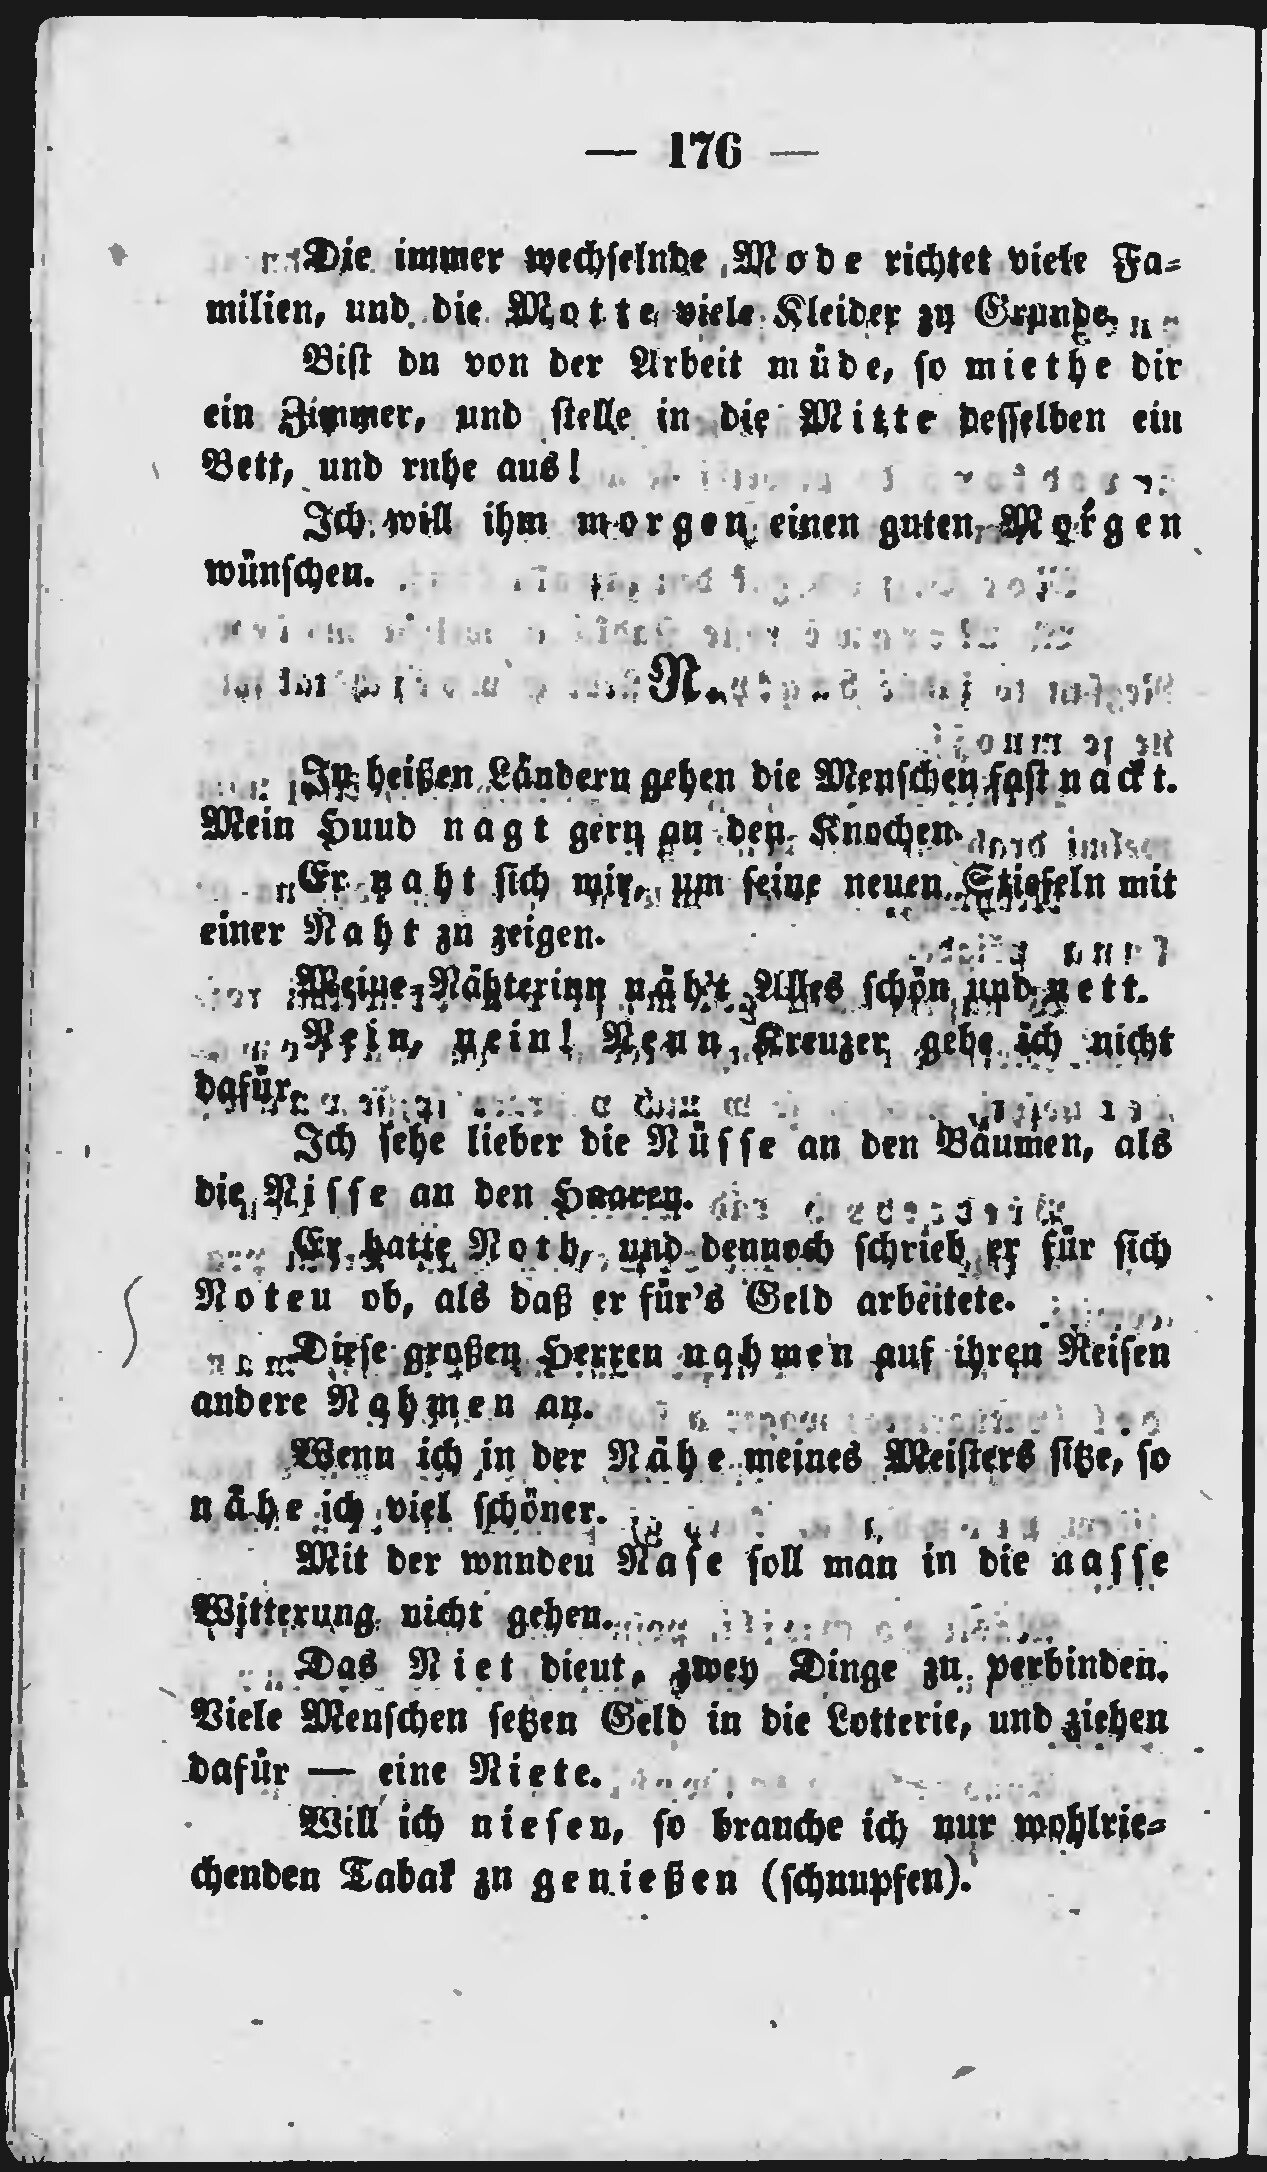 — 176 —
Die immer wechselnde Mode richtet viele Fa-
milien, und die Motte viele Kleider zu Grunde.
Bist du von der Arbeit müde, so miethe dir
ein Zimmer, und stelle in die Mitte desselben ein
Bett, und ruhe aus!
Ich will ihm morgen einen guten Morgen
wünschen.
N.
In heißen Ländern gehen die Menschen fast nackt.
Mein Hund nagt gern an den Knochen.
Er naht sich mir, um seine neuen Stiefeln mit
einer Naht zu zeigen.
Meine Nähterinn näh't Alles schön und nett.
Nein, nein! Neun Kreuzer gebe ich nicht
dafür.
Ich sehe lieber die Nüsse an den Bäumen, als
die Nisse an den Haaren.
Er hatte Noth, und dennoch schrieb er für sich
Noten ob, als daß er für's Geld arbeitete.
Diese großen Herren nahmen auf ihren Reisen
andere Nahmen an.
Wenn ich in der Nähe meines Meisters sitze, so
nähe ich viel schöner.
Mit der wunden Nase soll man in die nasse
Witterung nicht gehen.
Das Niet dient, zwey Dinge zu verbinden.
Viele Menschen setzen Geld in die Lotterie, und ziehen
dafür — eine Niete.
Will ich niesen, so brauche ich nur wohlrie-
chenden Tabak zu genießen (schnupfen).